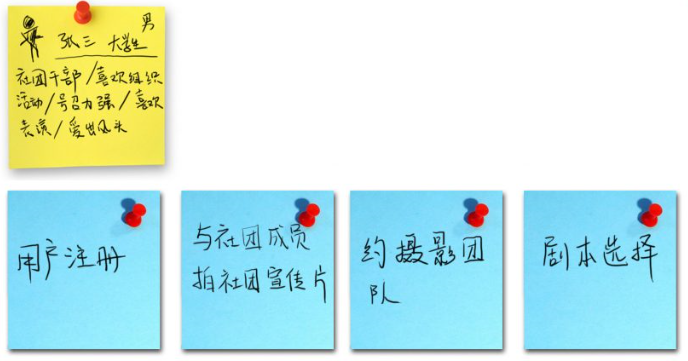 男
张三 大学生
社团干部/喜欢组织
活动/号召力强/喜欢
表演/爱出风头
用户注册
与社团成员
拍社团宣传片
约摄影团
队
剧本选择